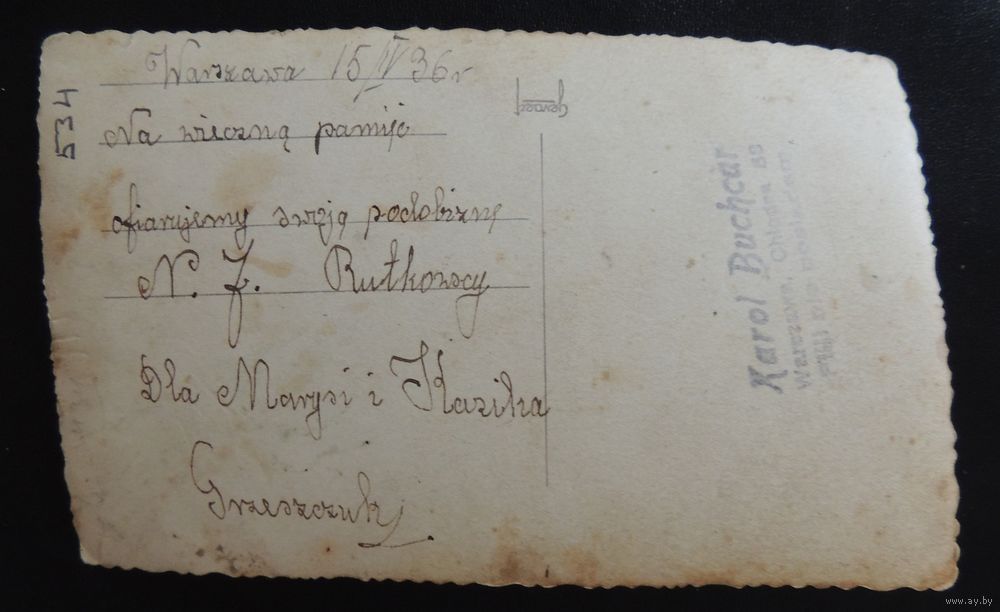 Warszawa 15/IV 36 r
Na wieczną pamięć
ofiarujemy swoją podobiznę
N. J. Rutkowscy
Dla Marysi i Kazika
Grzeszczuk
534
Gevaert
Karol Buchcar
Warszawa, Chłodna
Filii nie posiadam.
www.ay.by